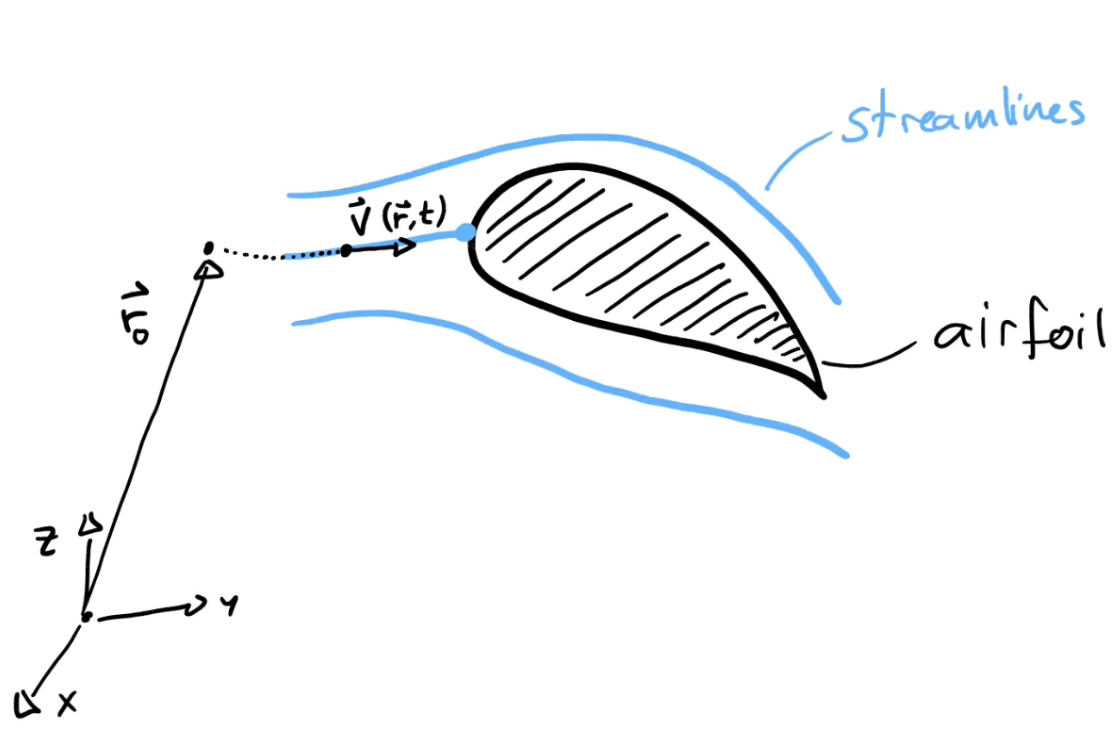 streamlines
v⃗ (r⃗,t)
r⃗₀
airfoil
z
y
x